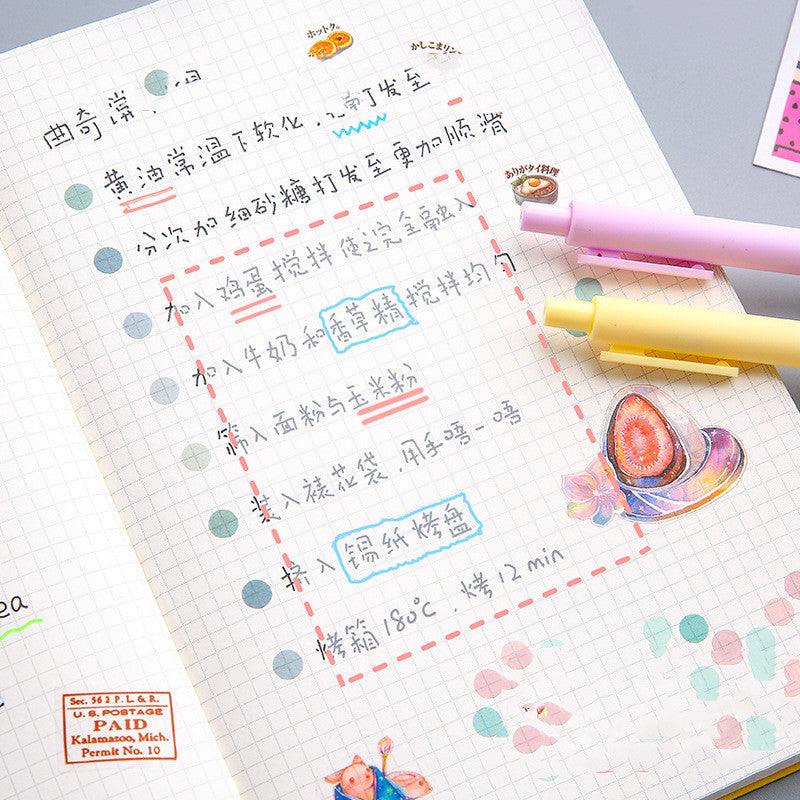 ホットク。
かしこまリン
曲奇常
黄油常温下软化，打发至
ありがタイ料理
分次加细砂糖打发至更加顺滑
加入鸡蛋搅拌使之完全融入
加入牛奶和香草精搅拌均匀
筛入面粉与玉米粉
装入裱花袋，用手唔一唔
挤入锡纸烤盘
烤箱180℃，烤12min
ea
Sec. 562 P. L. & R.
U.S. POSTAGE
PAID
Kalamazoo, Mich.
Permit No. 10